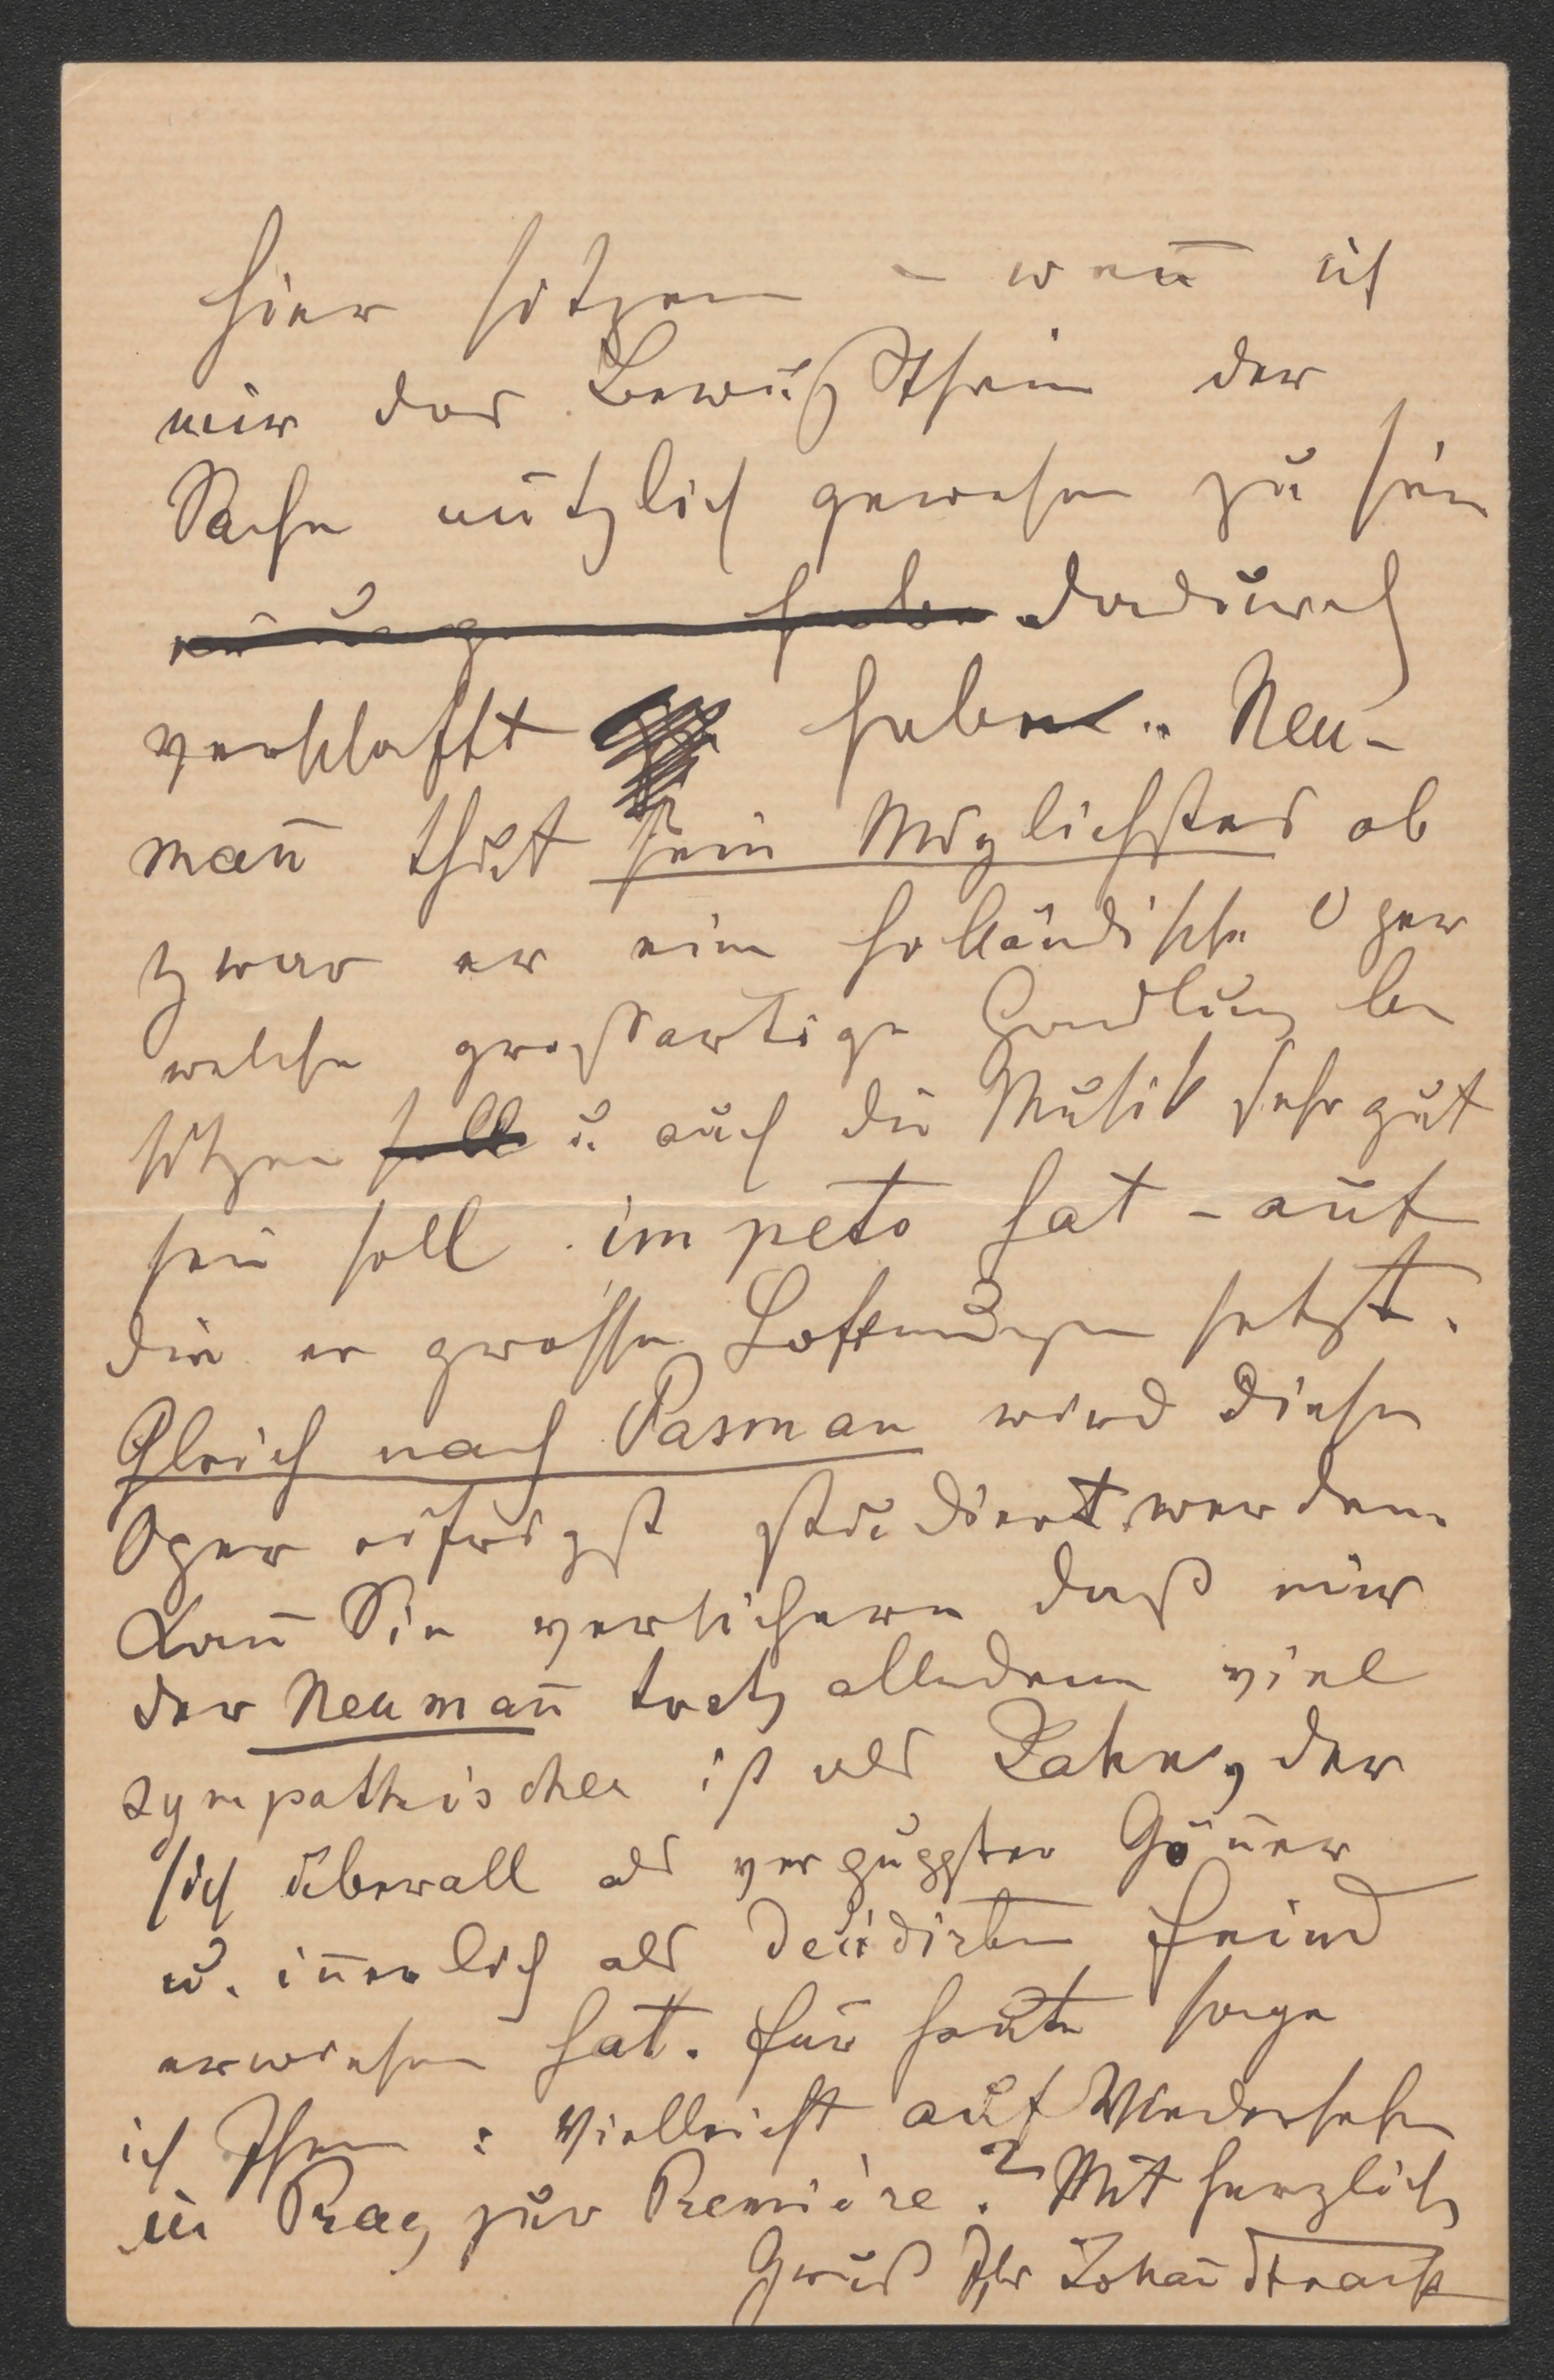 hier sitzen – wen̄ ich
mir das Bewußtsein der
Sache nützlich gewesen zu sein
habe dadurch
verschafft haben. Neu-
man̄ thut sein Möglichstes ob
zwar er eine holländische Oper
welche großartige Handlung be
sitzen soll u. auch die Musik sehr gut
sein soll im peto hat – auf
die er grosse Hoffnungen setzt.
Gleich nach Pasman wird diese
Oper eifrigst studiert werden.
Kan̄ Sie versichern daß mir
der Neuman̄ trotz alledem viel
sympathischer ist als Jahn, der
sich überall als Gön̄er
u. in̄erlich als decidirten Feind
erwiesen hat. Für heute sage
ich Ihnen: Vielleicht auf Wiedersehen
in Prag zur Premiére? Mit herzlich
Gruß Ihr Johan̄ Strauss